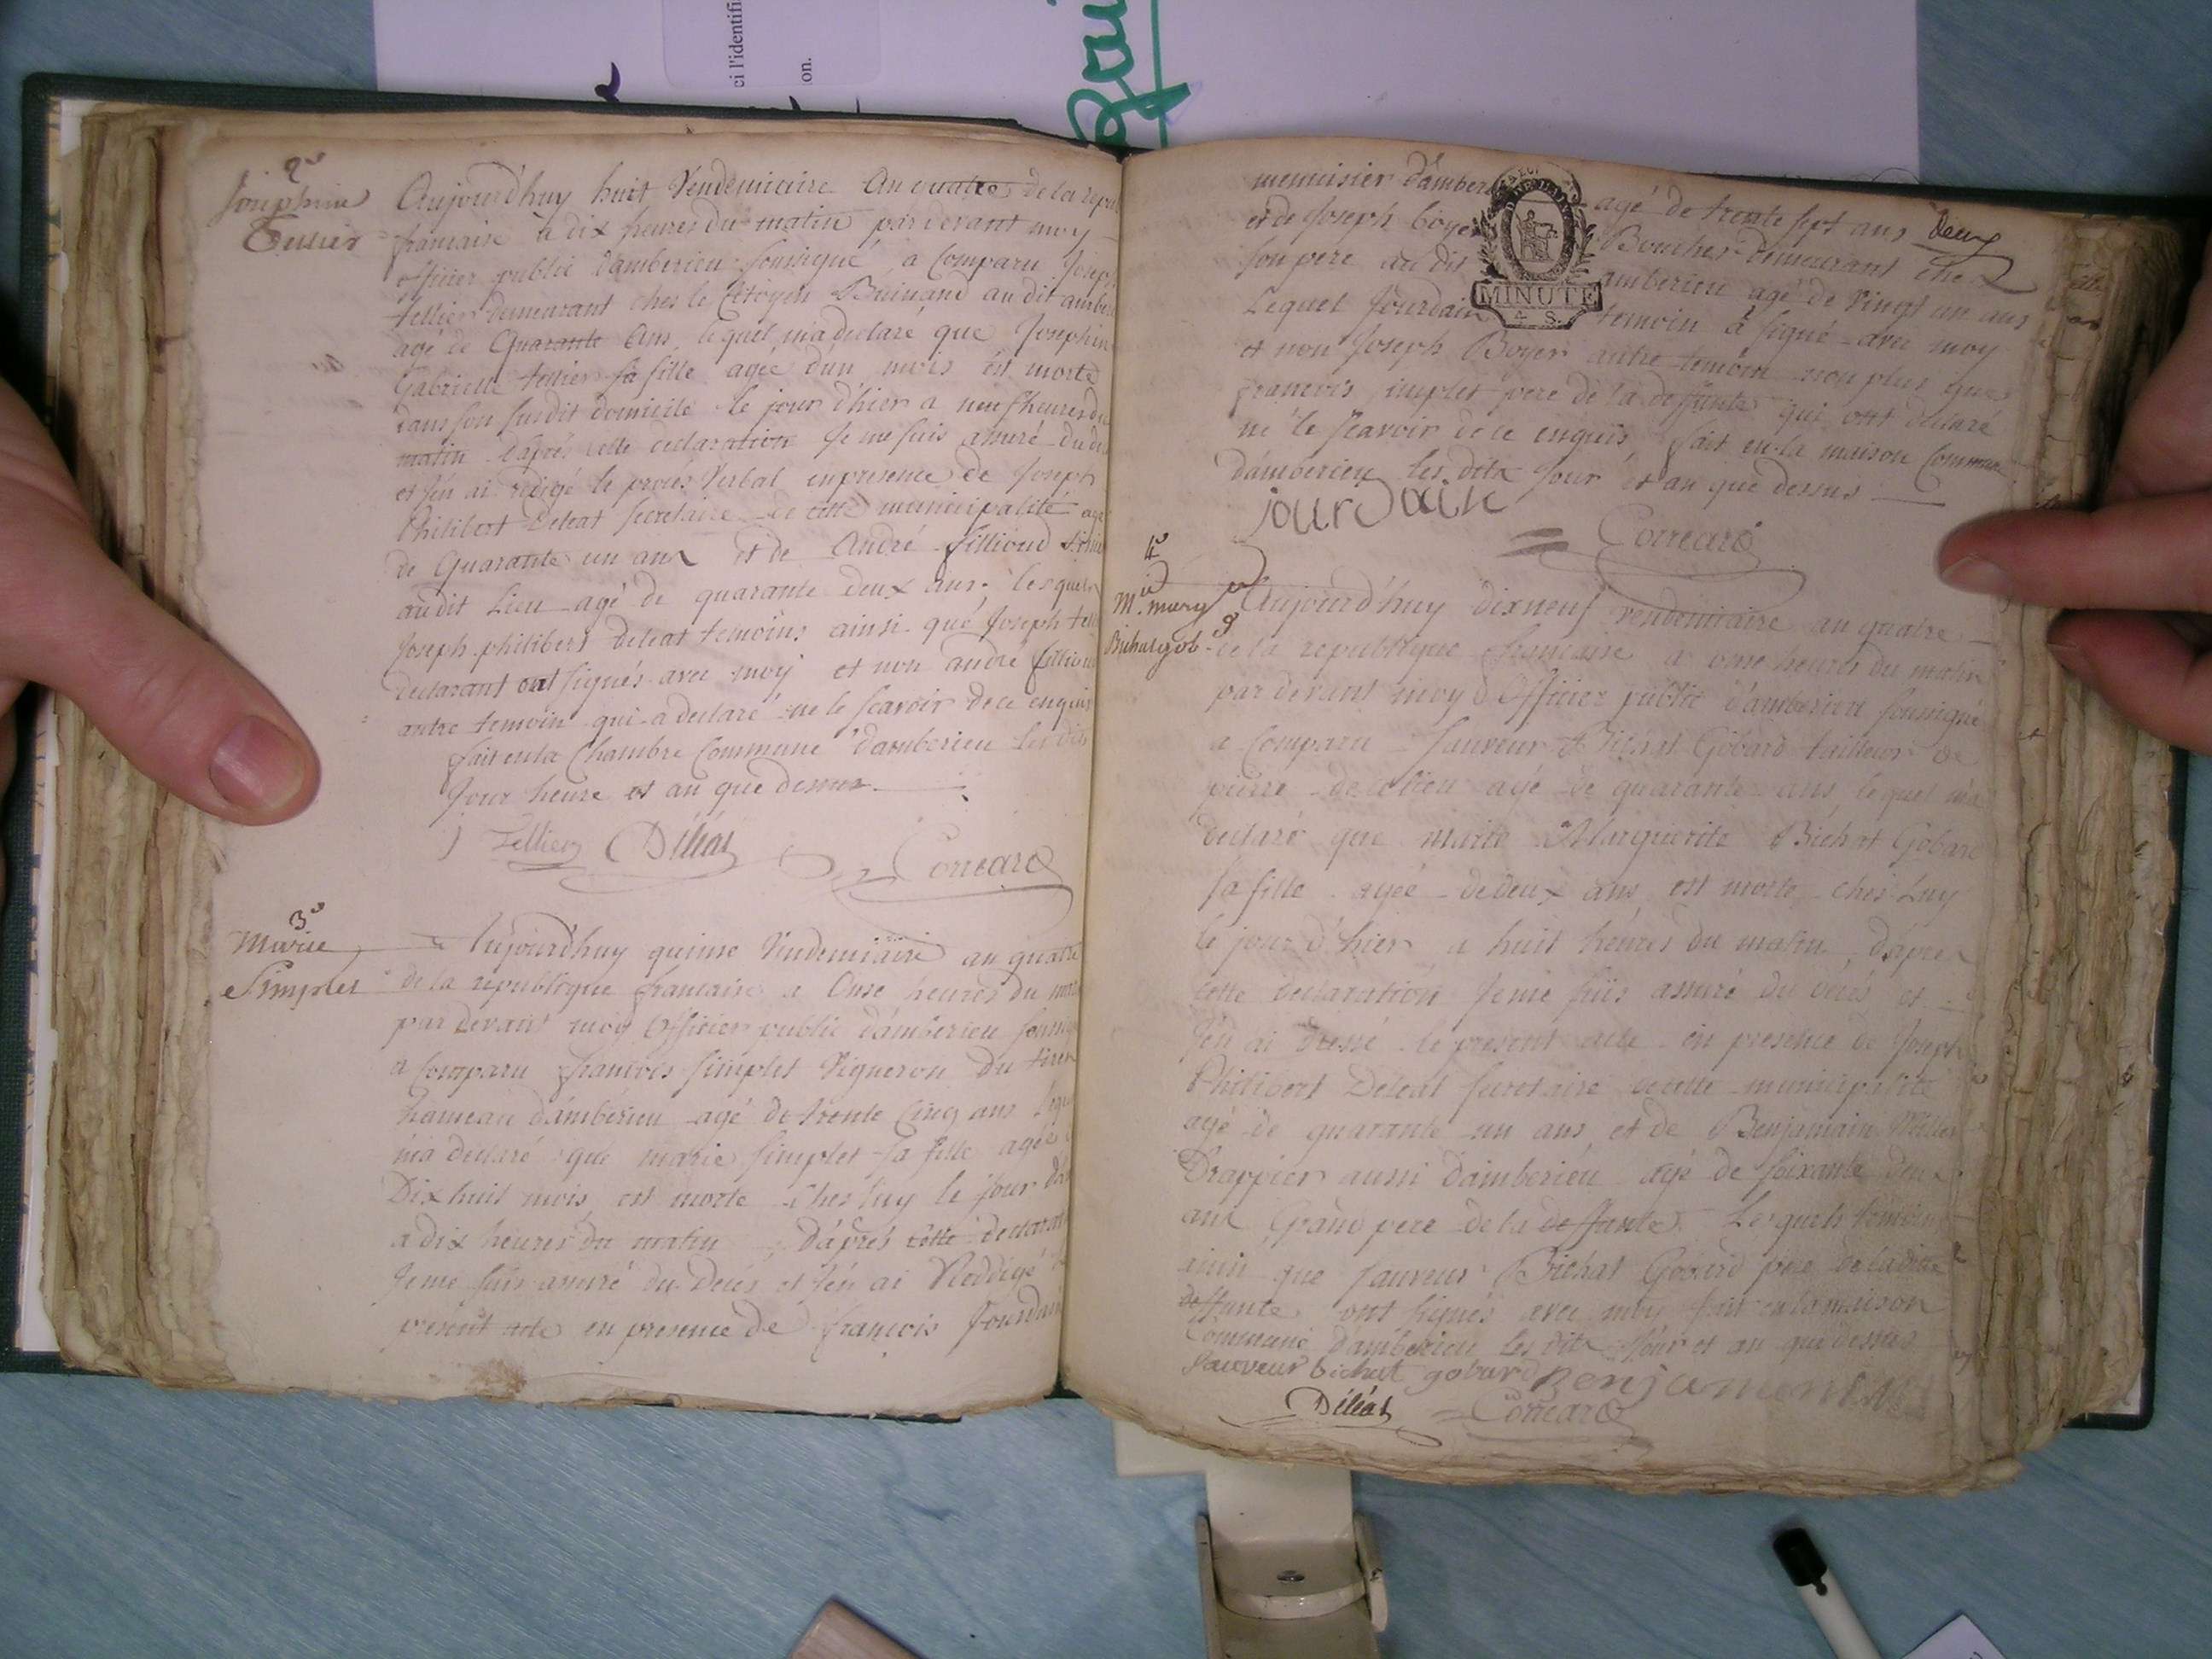 ci l'identifi
on.
2e
Josephine
Tellier
Aujourd'huy huit Vendemiaire An quatre de la repu
francaise à dix heures du matin par devant moy
officier public d'amberieu soussigné a Comparu Joseph
tellier demeurant ches le Citoyen au dit ambe
agé de Quarante Ans, lequel m'a declaré que Josephin
Gabrielle tellier sa fille agée d'un mois est morte
dans son susdit domicile le jour d'hier a neuf heures du
matin d'aprés cette declaration Je me suis assuré du de
et j'en ai redigé le procés Verbal en presence de Joseph
Philibert Deleat secretaire de cette municipalité agé
de Quarante un ans et de André fillioud
audit Lieu agé de quarante deux ans; lesquels
Joseph philibert deleat temoins ainsi que Joseph tell
declarant ont signés avec moy et non andré filliou
autre temoin qui a declaré ne le scavoir de ce enquis
fait en la Chambre Commune d'amberieu les dits
Jour heure et an que dessus.
J Tellier Déléat Correard
3e
Marie
Simplet
Aujourd'huy quinse Vendemiaire an quatre
de la republique francaise a Onse heures du mat
par devant moy Officier public d'amberieu soussig
a Comparu francois simplet Vigneron du tiret
hameau d'ambérieu agé de trente Cinq ans leque
m'a declaré que marie simplet sa fille agée
Dix huit mois est morte ches luy le jour d'hi
a dix heures du matin, d'aprés cette declarat
Je me suis assuré du Decés et j'en ai Reddigé le
present acte en presence de francois Jourdain
menuisier d'amberi agé de trente sept ans Deux
et de Joseph boyer Boucher demeurant ches
son pere au dit amberieu agé de vingt un ans
Lequel Jourdain temoin a signé avec moy
et non Joseph Boyer autre temoin non plus que
francois simplet pere de la deffunte qui ont declaré
ne le scavoir de ce enquis, fait en la maison Commune
d'amberieu les dits jour et an que dessus
MINUTE
4 S.
jourdain
Correard
4e
Mie marg te
Bichat gob d
Aujourd'huy dixneuf vendemiaire an quatre
de la republique francaise a onse heures du matin
par devant moy Officier public d'amberieu soussigné
a Comparu Sauveur Bichat Gobard tailleur de
pierre de ce lieu agé de quarante ans, lequel m'a
declaré que marie Marguerite Bichat Gobard
sa fille agée de deux ans est morte ches Luy
le jour d'hier a huit heures du matin, d'apres
cette declaration Je me suis assuré du decés et
j'en ai dressé le present acte en presence de Joseph
Philibert Deleat secretaire de cette municipalité
agé de quarante un ans, et de Benjamain
Drappier aussi d'amberieu agé de soixante deux
ans, Grand pere de la deffunte. Lesquels temoins
ainsi que sauveur Bichat Gobard pere de la dite
deffunte ont signés avec moy fait en la maison
Commune d'amberieu les dits jour et an que dessus
Sauveur bichat gobard Benjamin
Déléat Correard